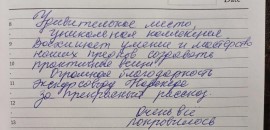 Date
Удивительное место,
уникальная коллекция
Восхищает умение и мастерство
наших предков создавать
практичные вещи
Огромная благодарность
Экскурсоводу
за прекрасный рассказ
Очень все
понравилось